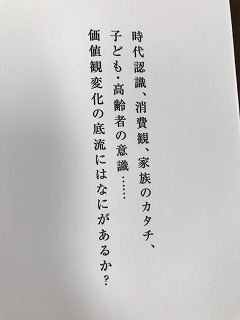 時代認識、消費観、家族のカタチ、
子ども・高齢者の意識……
価値観変化の底流にはなにがあるか？